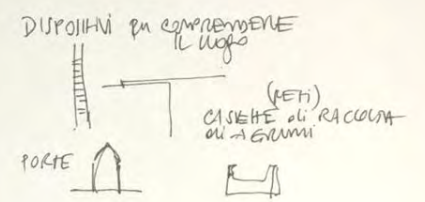 DISPOSITIVI per COMPRENDERE
IL LUOGO
(RETI)
CASSETTE di RACCOLTA
di AGRUMI
PORTE